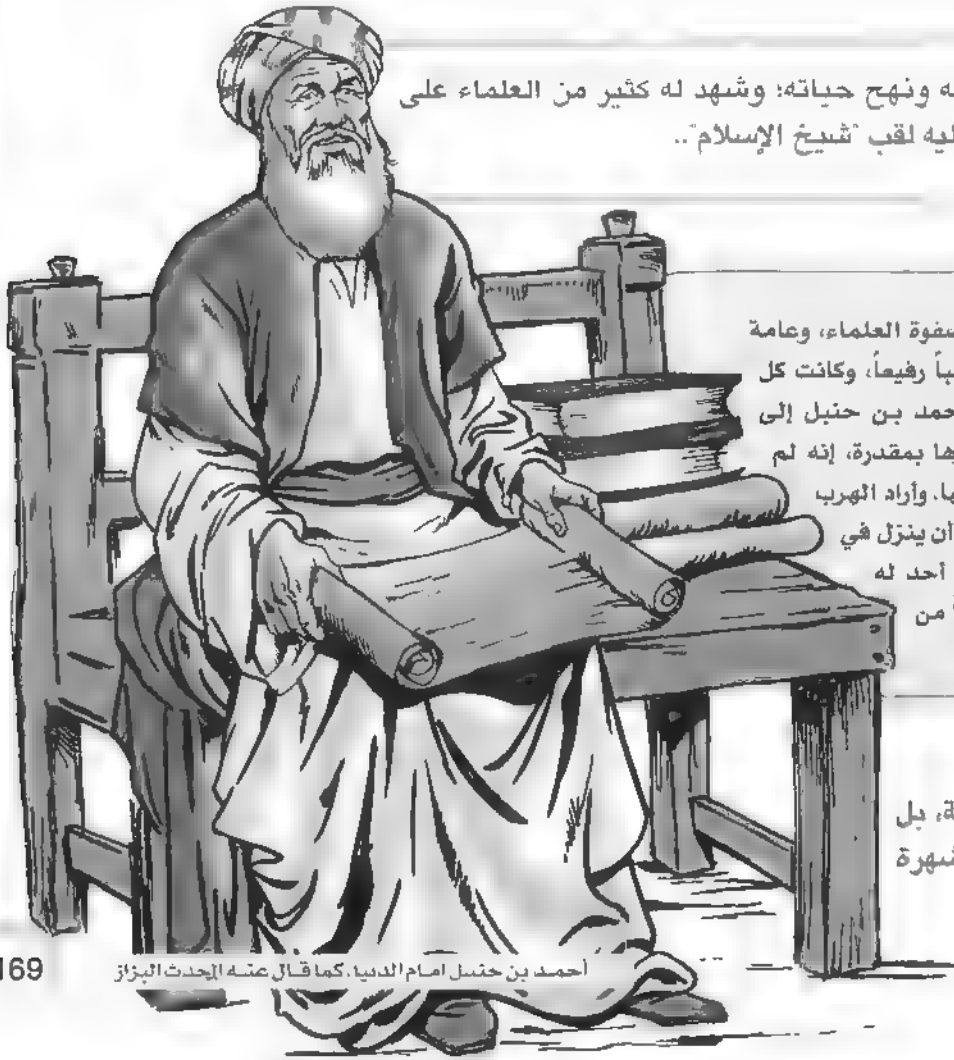 ه ونهج حياته؛ وشهد له كثير من العلماء على
ليه لقب "شيخ الإسلام"..
صفوة العلماء، وعامة
بأ رفيعاً، وكانت كل
حمد بن حنبل إلى
ها بمقدرة، إنه لم
ها. وأراد الهرب
أن ينزل في
أحد له
من
ة، بل
شهرة
أحمد بن حنبل امام الدنيا. كما قال عنه المحدث البزاز
169